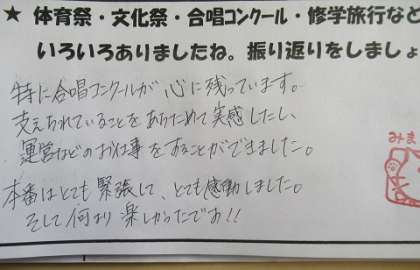 ★ 体育祭・文化祭・合唱コンクール・修学旅行など
いろいろありましたね。振り返りをしましょ
特に合唱コンクールが心に残っています。
支えられていることをあらためて実感したし、
運営などのお仕事をすることができました。
本番はとても緊張して、とても感動しました。
そして何より楽しかったです!!
みま